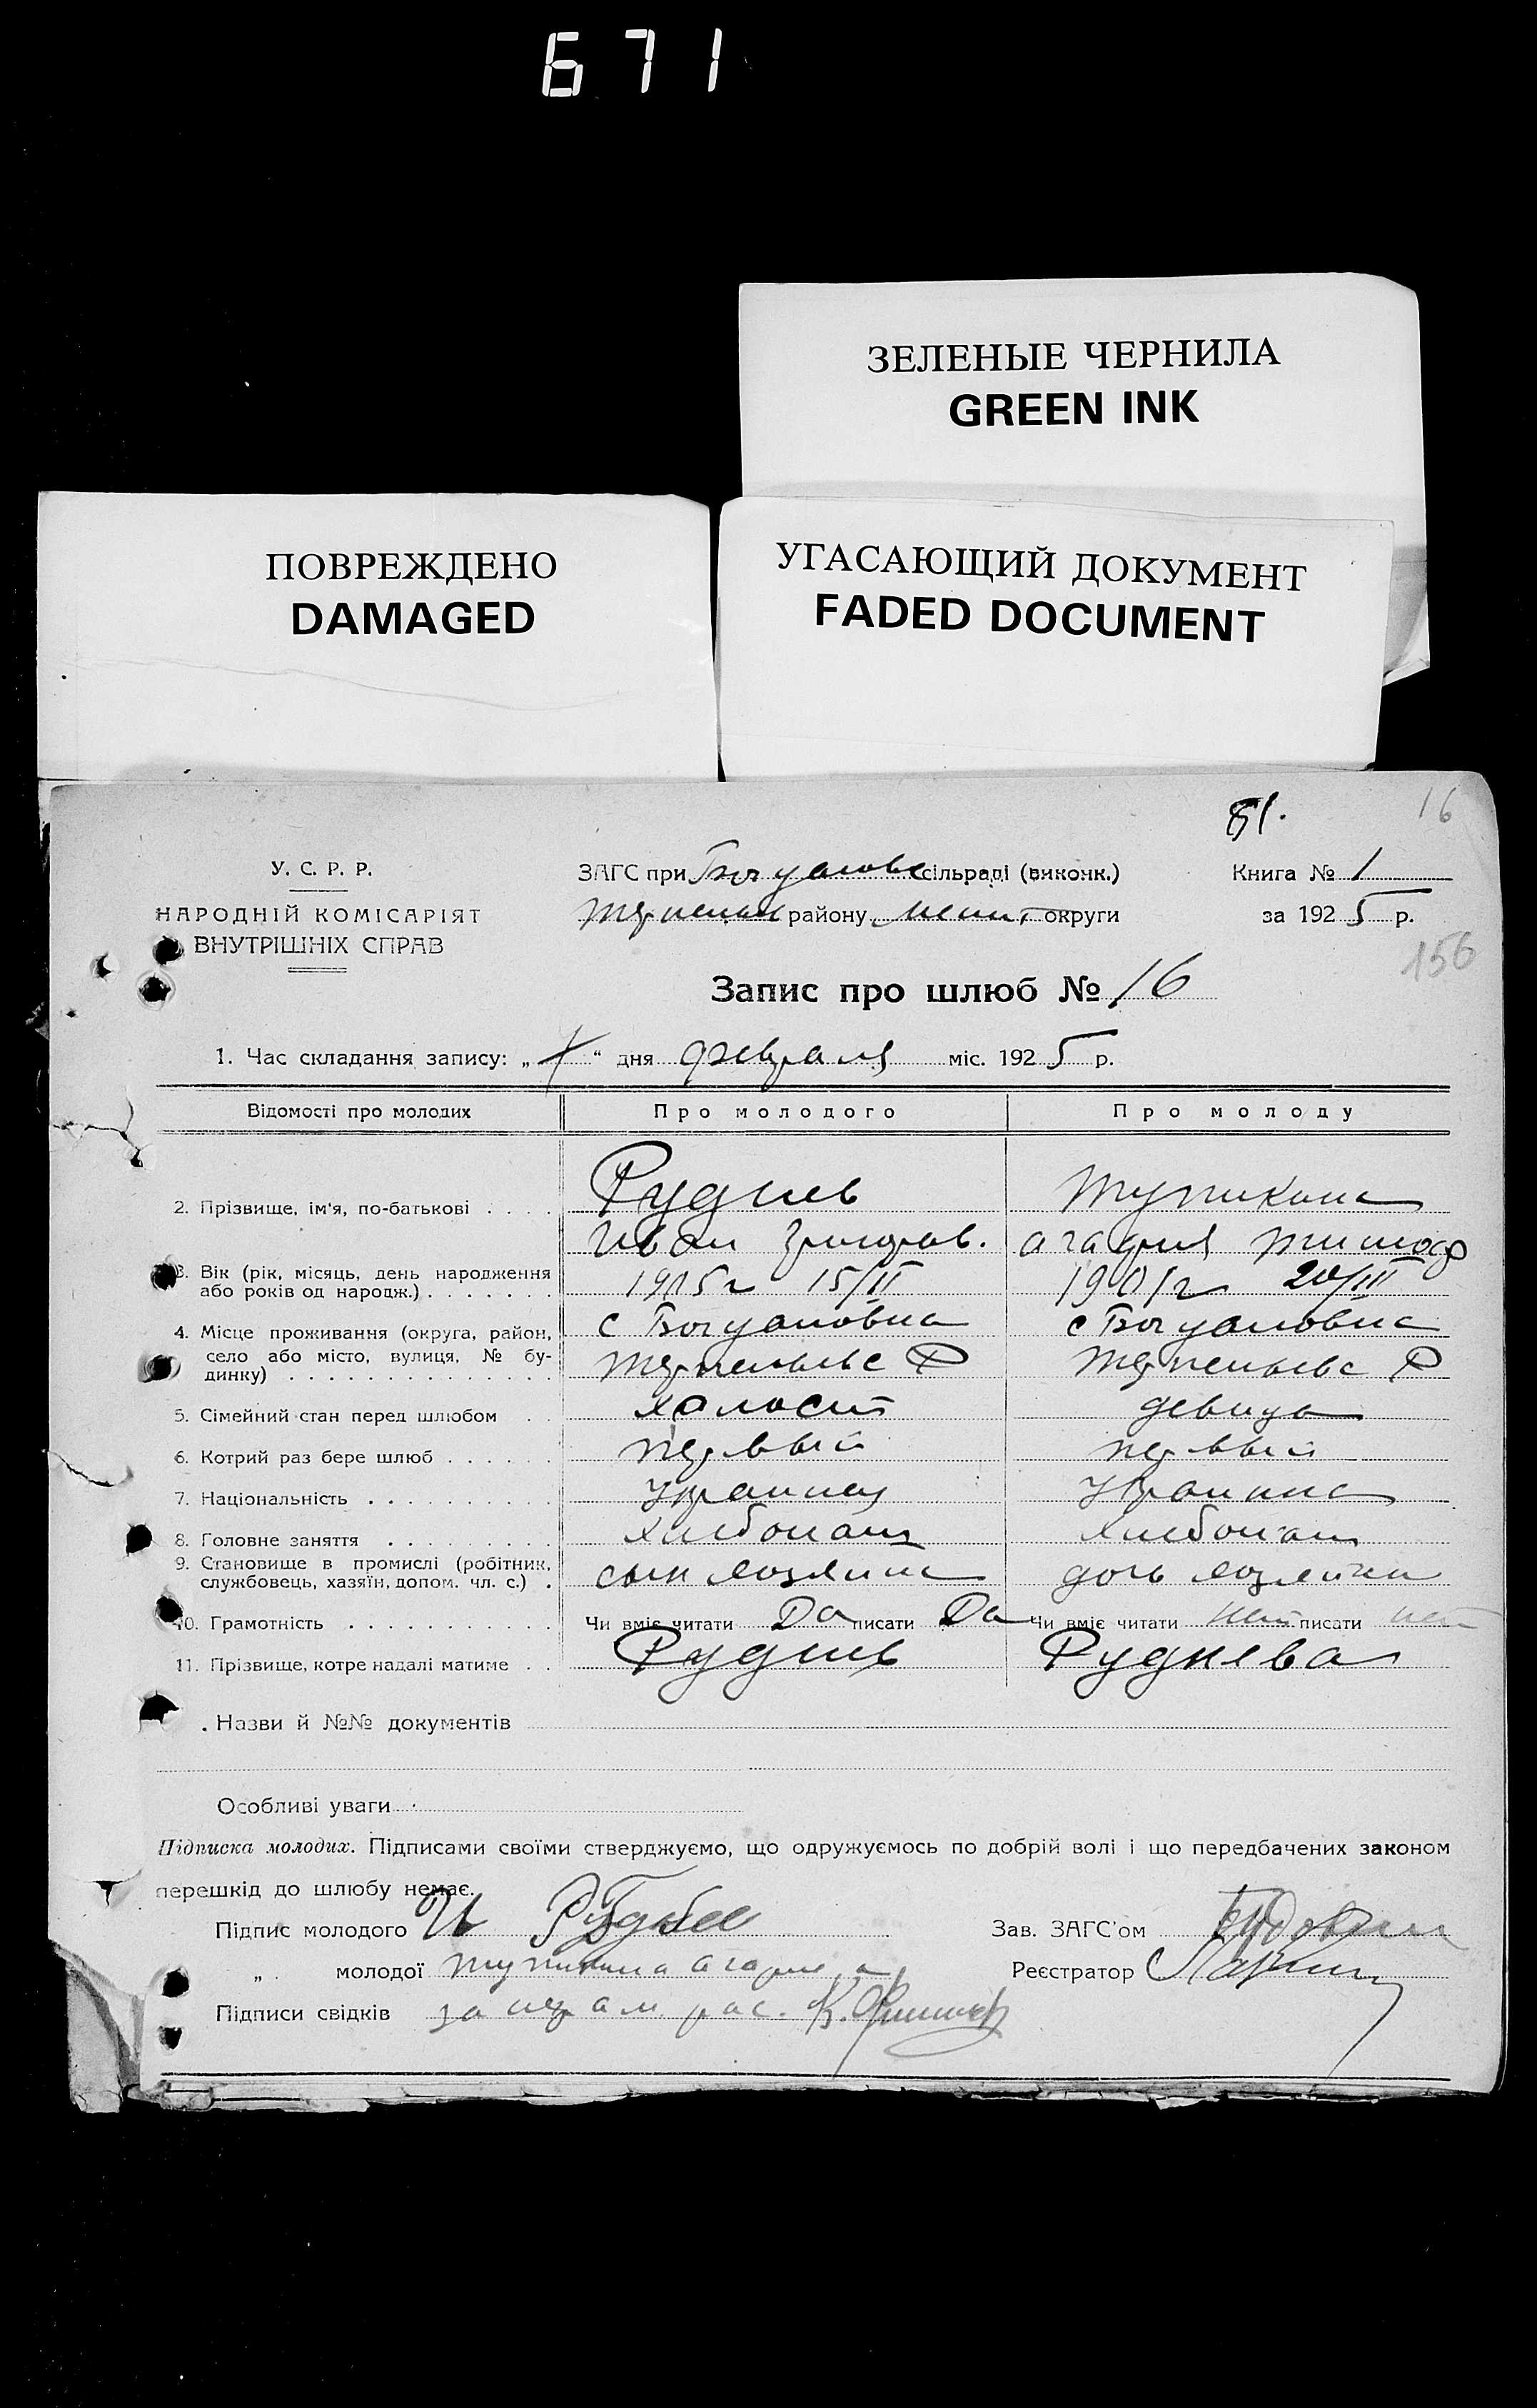 671
ЗЕЛЕНЫЕ ЧЕРНИЛА
GREEN INK
ПОВРЕЖДЕНО
DAMAGED
УГАСАЮЩИЙ ДОКУМЕНТ
FADED DOCUMENT
81. 16
У. С. Р. Р.
НАРОДНІЙ КОМІСАРІЯТ
ВНУТРІШНІХ СПРАВ
ЗАГС при Богданов сільраді (виконк.)
району округи
Книга № 1
за 1925 р.
156
Запис про шлюб № 16
1. Час складання запису: „ “ дня февраля міс. 1925 р.
Відомості про молодих Про молодого Про молоду
2. Прізвище, ім'я, по-батькові . . . . Руднев Тупикина
Иван Григорев. Агафия Тимоф
3. Вік (рік, місяць, день народження або років од народж.) . . . . . . . 1905 г 15/II 1901 г 20/III
4. Місце проживання (округа, район, село або місто, вулиця, № будинку) . . . . . . . . . . . . . . с Богдановка с Богдановка
Терпеньевс Р Терпеньевс Р
5. Сімейний стан перед шлюбом . . холост девица
6. Котрий раз бере шлюб . . . . первый первый
7. Національність . . . . . . . . . . украинец украинка
8. Головне заняття . . . . . . . . . хлебопаш хлебопаш
9. Становище в промислі (робітник, службовець, хазяїн, допом. чл. с.) . сын хозяина дочь хозяина
10. Грамотність . . . . . . . . . . . Чи вміє читати Да писати Да Чи вміє читати нет писати нет
11. Прізвище, котре надалі матиме . . Руднев Руднева
. Назви й №№ документів
Особливі уваги
Підписка молодих. Підписами своїми стверджуємо, що одружуємось по добрій волі і що передбачених законом
перешкід до шлюбу немає.
Підпис молодого И Руднев Зав. ЗАГС'ом
„ молодої Тупикина Агафия Реєстратор
Підписи свідків за неграм рас. К.